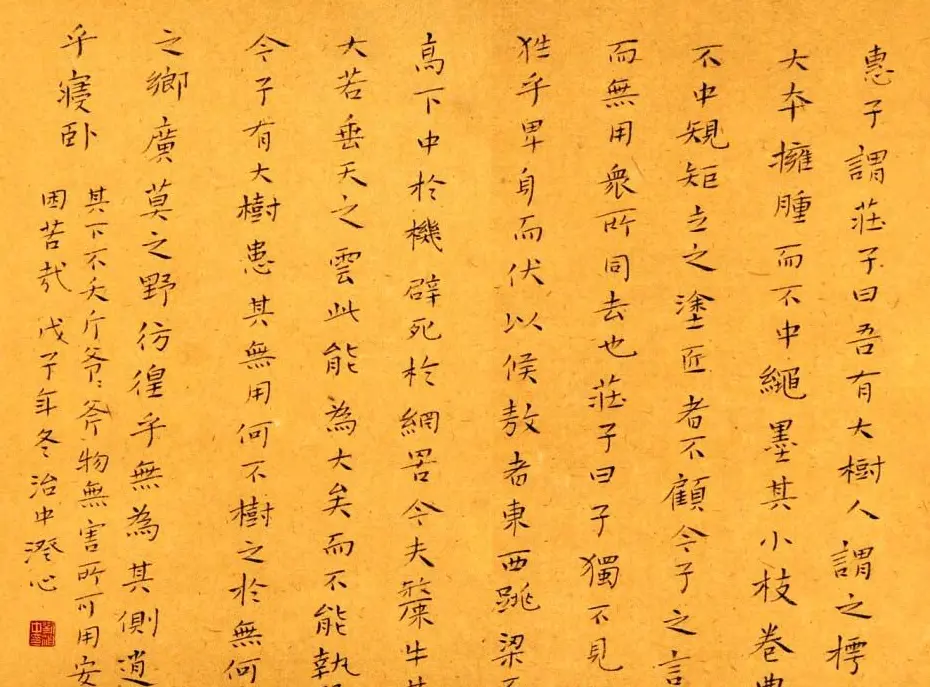 惠子謂莊子曰吾有大樹人謂之樗
大本擁腫而不中繩墨其小枝卷曲
不中規矩立之塗匠者不顧今子之言
而無用衆所同去也莊子曰子獨不見
狌乎卑身而伏以候敖者東西跳梁不
高下中於機辟死於網罟今夫斄牛
大若垂天之雲此能為大矣而不能執
今子有大樹患其無用何不樹之於無何
之鄉廣莫之野彷徨乎無為其側逍
乎寢卧
其下不夭斤斧物無害所可用安
困苦哉 戊子年冬治中澄心